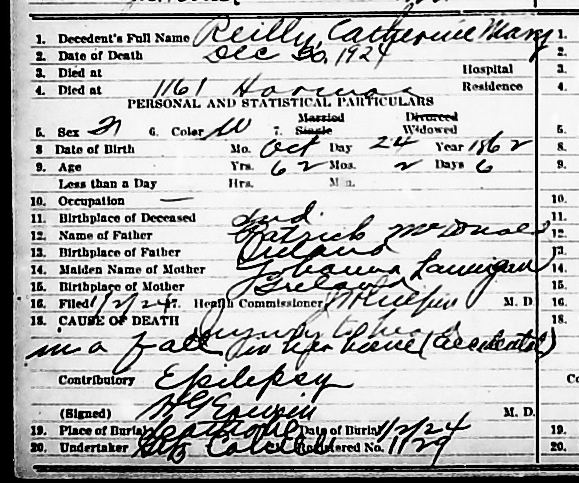 1. Decedent's Full Name Reilly, Catherine Mary
2. Date of Death Dec 30, 1924
3. Died at Hospital
4. Died at 1161 Residence
PERSONAL AND STATISTICAL PARTICULARS
5. Sex 6. Color W 7. Married Single Divorced Widowed
8 Date of Birth Mo. Oct Day 24 Year 1862
9. Age Yrs. 62 Mos. 2 Days 6
Less than a Day Hrs. Min.
10. Occupation —
11. Birthplace of Deceased Ind.
12. Name of Father Patrick McDonald
13. Birthplace of Father Ireland
14. Maiden Name of Mother Johanna Lannigan
15. Birthplace of Mother Ireland
16. Filed 1/2/24 17. Health Commissioner M. D.
18. CAUSE OF DEATH Injury to head
in a fall in her home (Accidental)
Contributory Epilepsy
(Signed) M. D.
19. Place of Burial Date of Burial 1/2/24
20. Undertaker Registered No. 1129
1.
2.
3.
4.
5.
8.
9.
10.
11.
12.
13.
14.
15.
16.
18.
Co
19.
20.